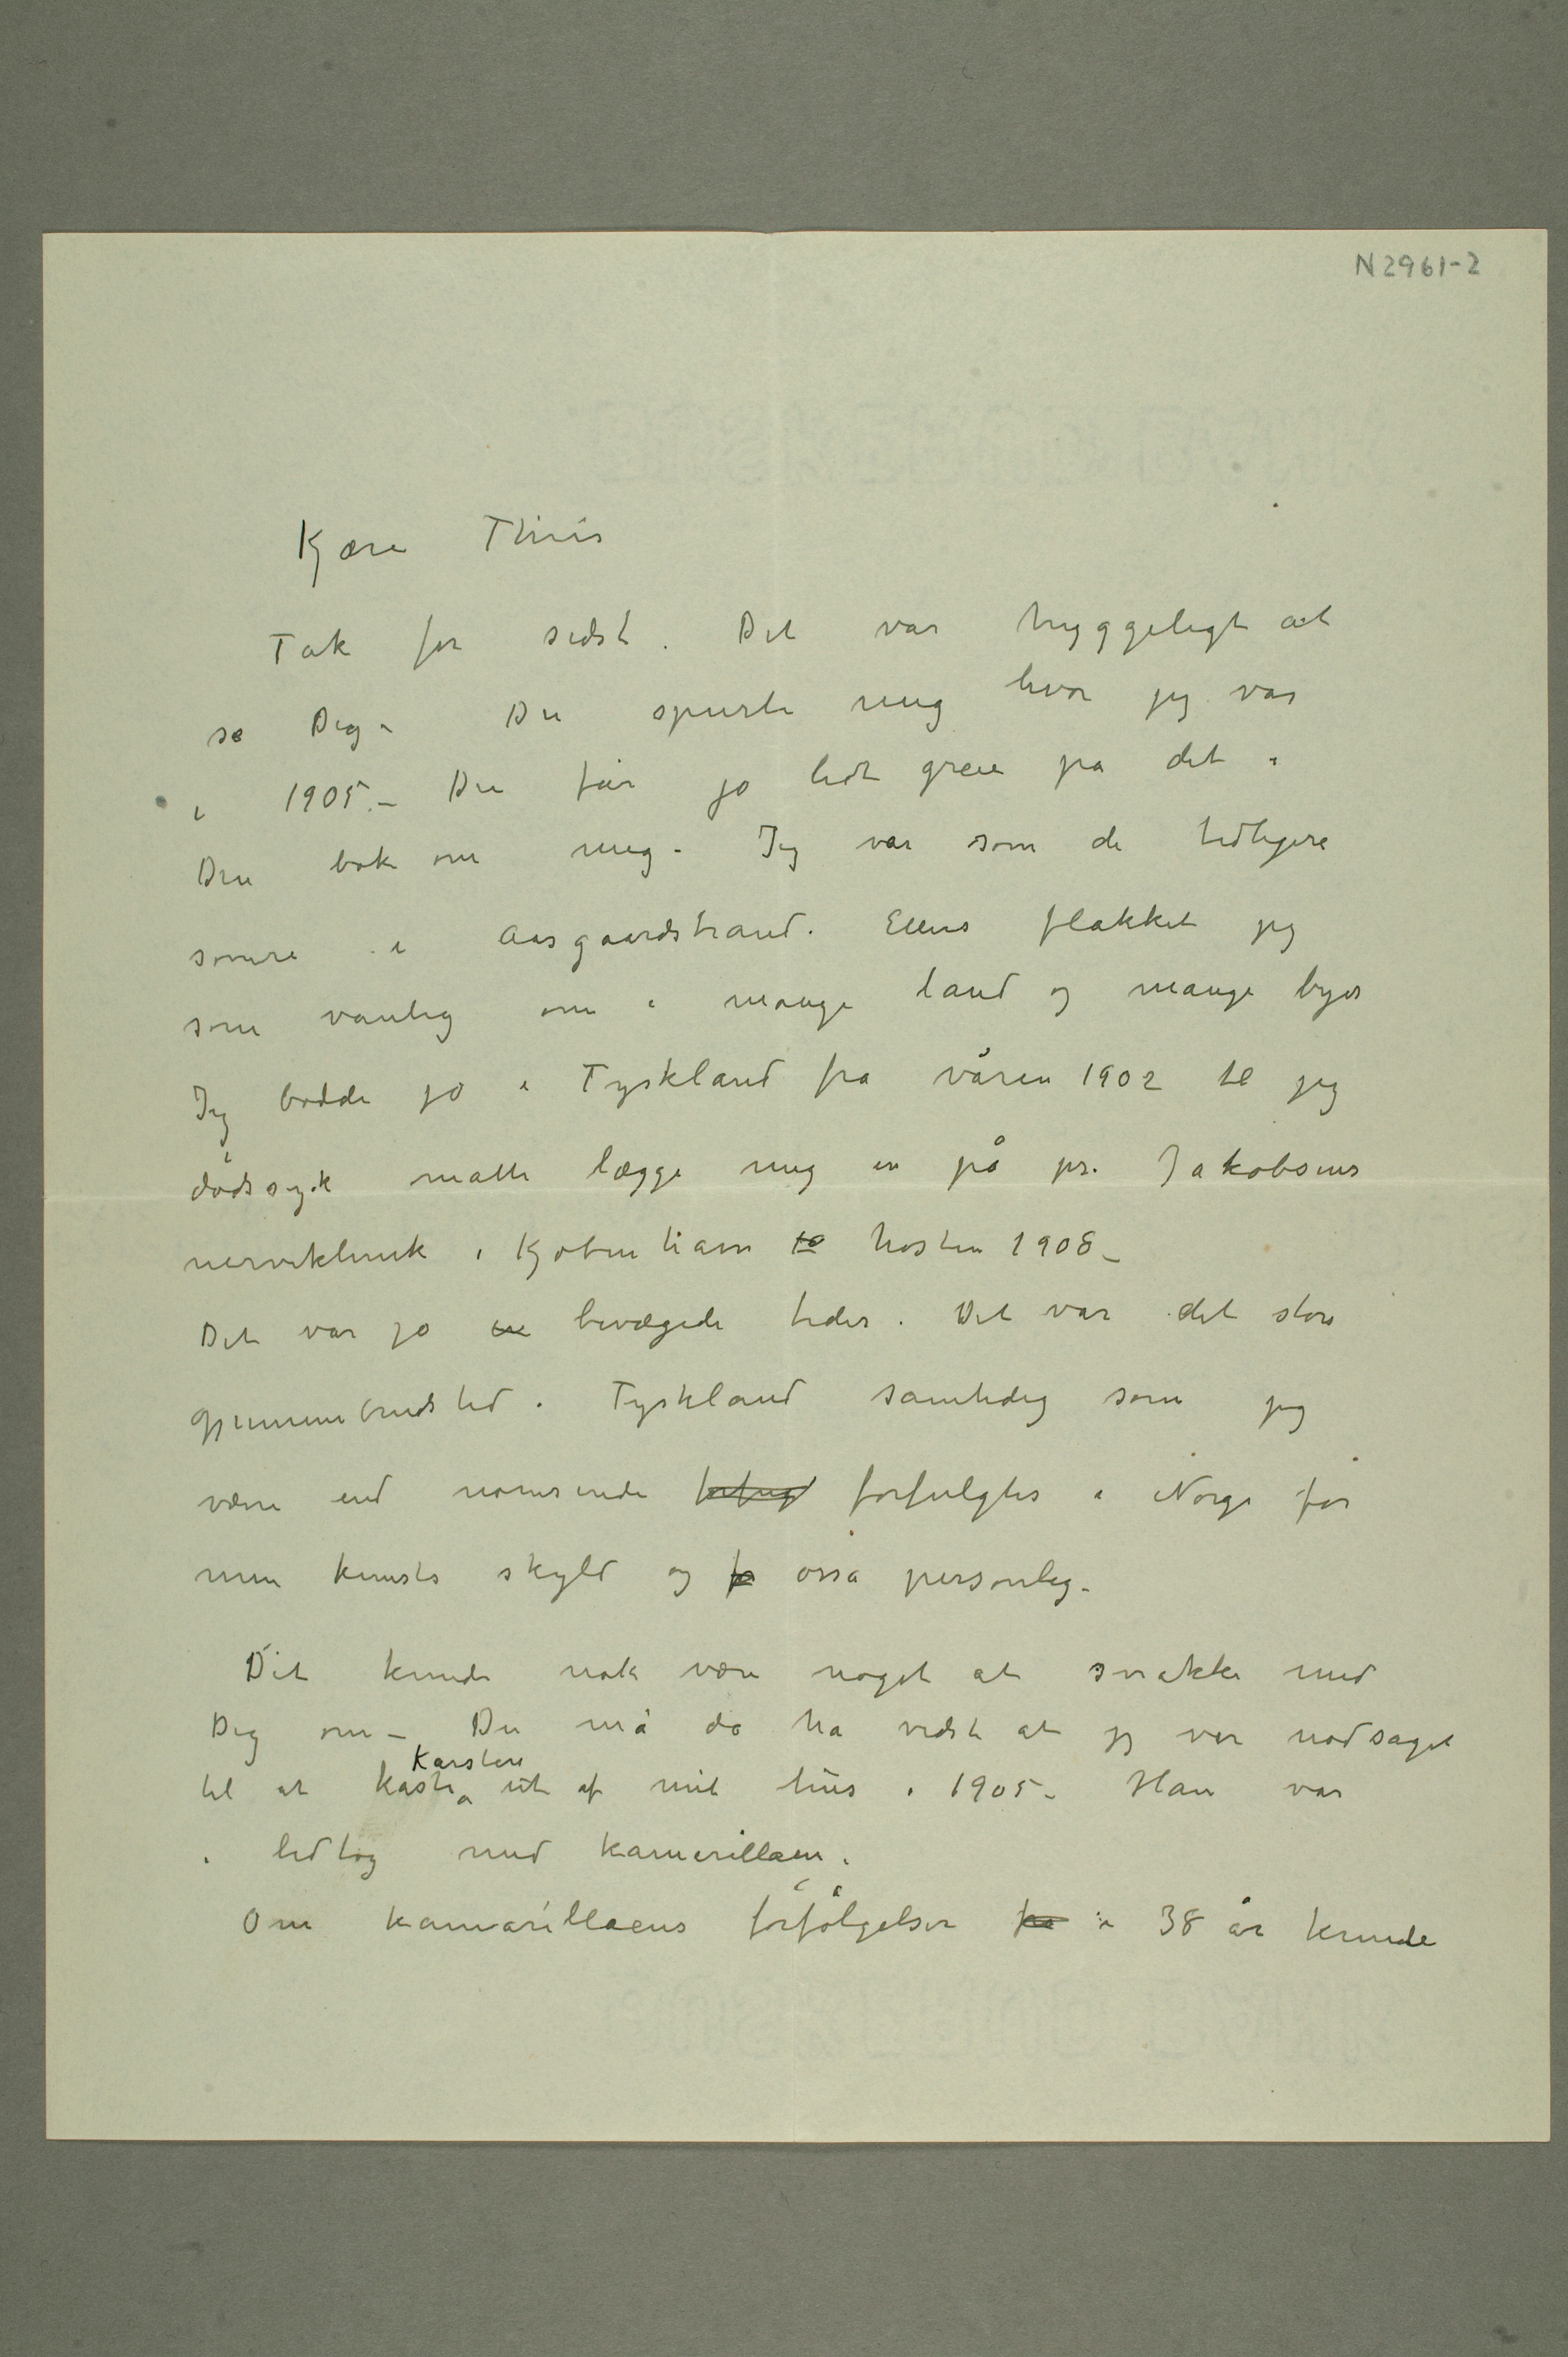 N2961-2
Kjære Thiis
Tak for sidst. Det var hyggeligt at
se Dig – Du spurte mig hvor jeg var
i 1905. – Du får jo lidt greie på det i
Din bok om mig – Jeg var som de tidligere
somre i Aasgaardstrand. Ellers flakket jeg
som vanlig om i mange land og mange byer
Jeg bodde jo i Tyskland fra våren 1902 til jeg
dødssyk måtte lægge mig in på pr. Jakobsens
nerveklinik i Kjøbenhavn høsten 1908 –
Det var jo bevægede tider. Det var det store
gjennembrudstid i Tyskland samtidig som jeg
værre end nonsinde forfulgtes i Norge for
min kunsts skyld og osså personlig –
Det kunde nok være noget at snakke med
Dig om – Du må da ha vidst at jeg var nødsaget
Karsten
til at kaste ut af mit hus i 1905 – Han var
i ledtog med kamerillaen.
Om kamarillaens forfølgelser i 38 år kunde